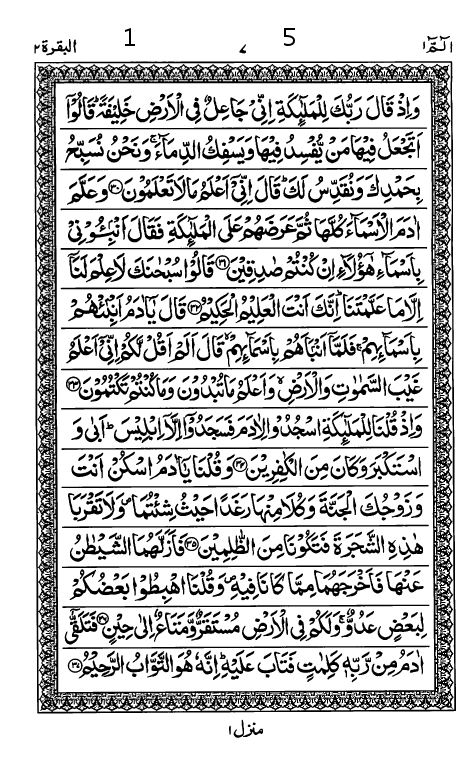 الٓمّٓ ۱ 5 ۷ 1 البقرة ۲
وَاِذْ قَالَ رَبُّكَ لِلْمَلٰٓئِكَةِ اِنِّیْ جَاعِلٌ فِی الْاَرْضِ خَلِیْفَةً ؕ قَالُوْۤا
اَتَجْعَلُ فِیْهَا مَنْ یُّفْسِدُ فِیْهَا وَیَسْفِكُ الدِّمَآءَ ۚ وَنَحْنُ نُسَبِّحُ
بِحَمْدِكَ وَنُقَدِّسُ لَكَ ؕ قَالَ اِنِّیْۤ اَعْلَمُ مَا لَا تَعْلَمُوْنَ ۝۳۰ وَعَلَّمَ
اٰدَمَ الْاَسْمَآءَ كُلَّهَا ثُمَّ عَرَضَهُمْ عَلَی الْمَلٰٓئِكَةِ ۙ فَقَالَ اَنْۢبِـُٔوْنِیْ
بِاَسْمَآءِ هٰۤؤُلَآءِ اِنْ كُنْتُمْ صٰدِقِیْنَ ۝۳۱ قَالُوْا سُبْحٰنَكَ لَا عِلْمَ لَنَاۤ
اِلَّا مَا عَلَّمْتَنَا ؕ اِنَّكَ اَنْتَ الْعَلِیْمُ الْحَكِیْمُ ۝۳۲ قَالَ یٰۤاٰدَمُ اَنْۢبِئْهُمْ
بِاَسْمَآىِٕهِمْ ۚ فَلَمَّاۤ اَنْۢبَاَهُمْ بِاَسْمَآىِٕهِمْ ۙ قَالَ اَلَمْ اَقُلْ لَّكُمْ اِنِّیْۤ اَعْلَمُ
غَیْبَ السَّمٰوٰتِ وَالْاَرْضِ ۙ وَاَعْلَمُ مَا تُبْدُوْنَ وَمَا كُنْتُمْ تَكْتُمُوْنَ ۝۳۳
وَاِذْ قُلْنَا لِلْمَلٰٓئِكَةِ اسْجُدُوْا لِاٰدَمَ فَسَجَدُوْۤا اِلَّاۤ اِبْلِیْسَ ؕ اَبٰی وَ
اسْتَكْبَرَ ۫ وَكَانَ مِنَ الْكٰفِرِیْنَ ۝۳۴ وَقُلْنَا یٰۤاٰدَمُ اسْكُنْ اَنْتَ
وَزَوْجُكَ الْجَنَّةَ وَكُلَا مِنْهَا رَغَدًا حَیْثُ شِئْتُمَا ۪ وَلَا تَقْرَبَا
هٰذِهِ الشَّجَرَةَ فَتَكُوْنَا مِنَ الظّٰلِمِیْنَ ۝۳۵ فَاَزَلَّهُمَا الشَّیْطٰنُ
عَنْهَا فَاَخْرَجَهُمَا مِمَّا كَانَا فِیْهِ ۪ وَقُلْنَا اهْبِطُوْا بَعْضُكُمْ
لِبَعْضٍ عَدُوٌّ ۚ وَلَكُمْ فِی الْاَرْضِ مُسْتَقَرٌّ وَّمَتَاعٌ اِلٰی حِیْنٍ ۝۳۶ فَتَلَقّٰۤی
اٰدَمُ مِنْ رَّبِّهٖ كَلِمٰتٍ فَتَابَ عَلَیْهِ ؕ اِنَّهٗ هُوَ التَّوَّابُ الرَّحِیْمُ ۝۳۷
منزل ۱